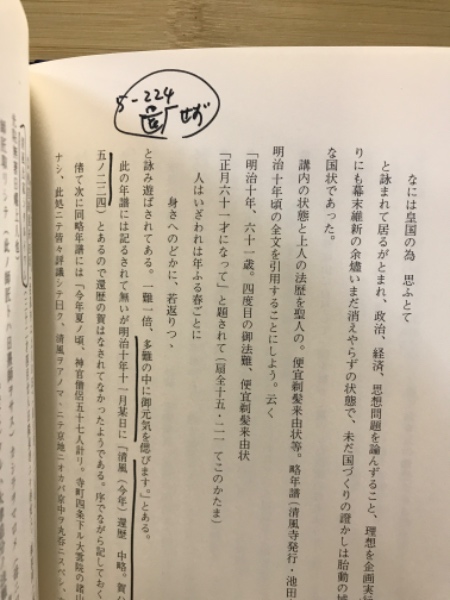 5-224
なには皇国の為 思ふとて
と詠まれて居るがとまれ、政治、経済、思想問題を論んずること、理想を企画実行
りにも幕末維新の余燼いまだ消えやらずの状態で、未だ国づくりの證かしは胎動の域
な国状であった。
講内の状態と上人の法歴を聖人の。便宜剃髪来由状等。略年譜(清風寺発行・池田
明治十年頃の全文を引用することにしよう。云く
「明治十年、六十一歳。四度目の御法難、便宜剃髪来由状
「正月六十一才になって」と題されて(扇全十五・二一 てこのかたま)
人はいざわれは年ふる春ごとに
身さへのどかに、若返りつゝ
と詠み遊ばされてある。一難一倍、多難の中に御元気を偲びます。」とある。
此の年譜には記るされて無いが明治十年十一月某日に「清風(今年)還歴 中略。賀
五ノ二二四)とあるので還歴の賀はなされてなかったようである。序でながら記しておく
偖て次に同略年譜には「今年夏ノ頃、神官僧侶五十七人計リ。寺町四条下ル大雲院の諸山
ナシ、此処ニテ皆々評議シテ曰ク、清風ヲアノマヽニテ京地ニオカバ京中ヲ丸呑ニスベシ、